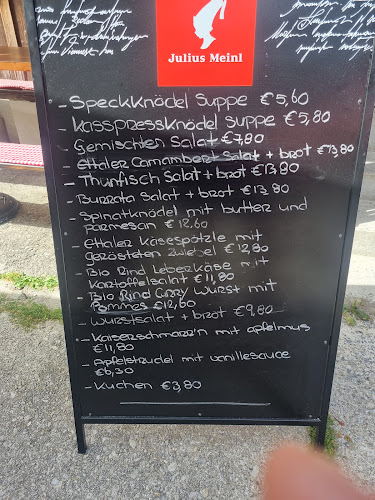 Julius Meinl
- Speckknödel Suppe €5,60
- Kasspressknödel Suppe €5,80
- Gemischten Salat €7,80
- Ettaler Camembert Salat + Brot €13,80
- Thunfisch Salat + Brot €13,80
- Burrata Salat + Brot €13,80
- Spinatknödel mit Butter und
Parmesan €12,60
- Ettaler Käsespätzle mit
gerösteten Zwiebel €12,80
- Bio Rind Leberkäse mit
Kartoffelsalat €11,80
- Bio Rind Curry Wurst mit
Pommes €12,60
- Wurstsalat + Brot €9,80
- Kaiserschmarr'n mit Apfelmus
€11,80
- Apfelstrudel mit Vanillesauce
€6,30
- Kuchen €3,80